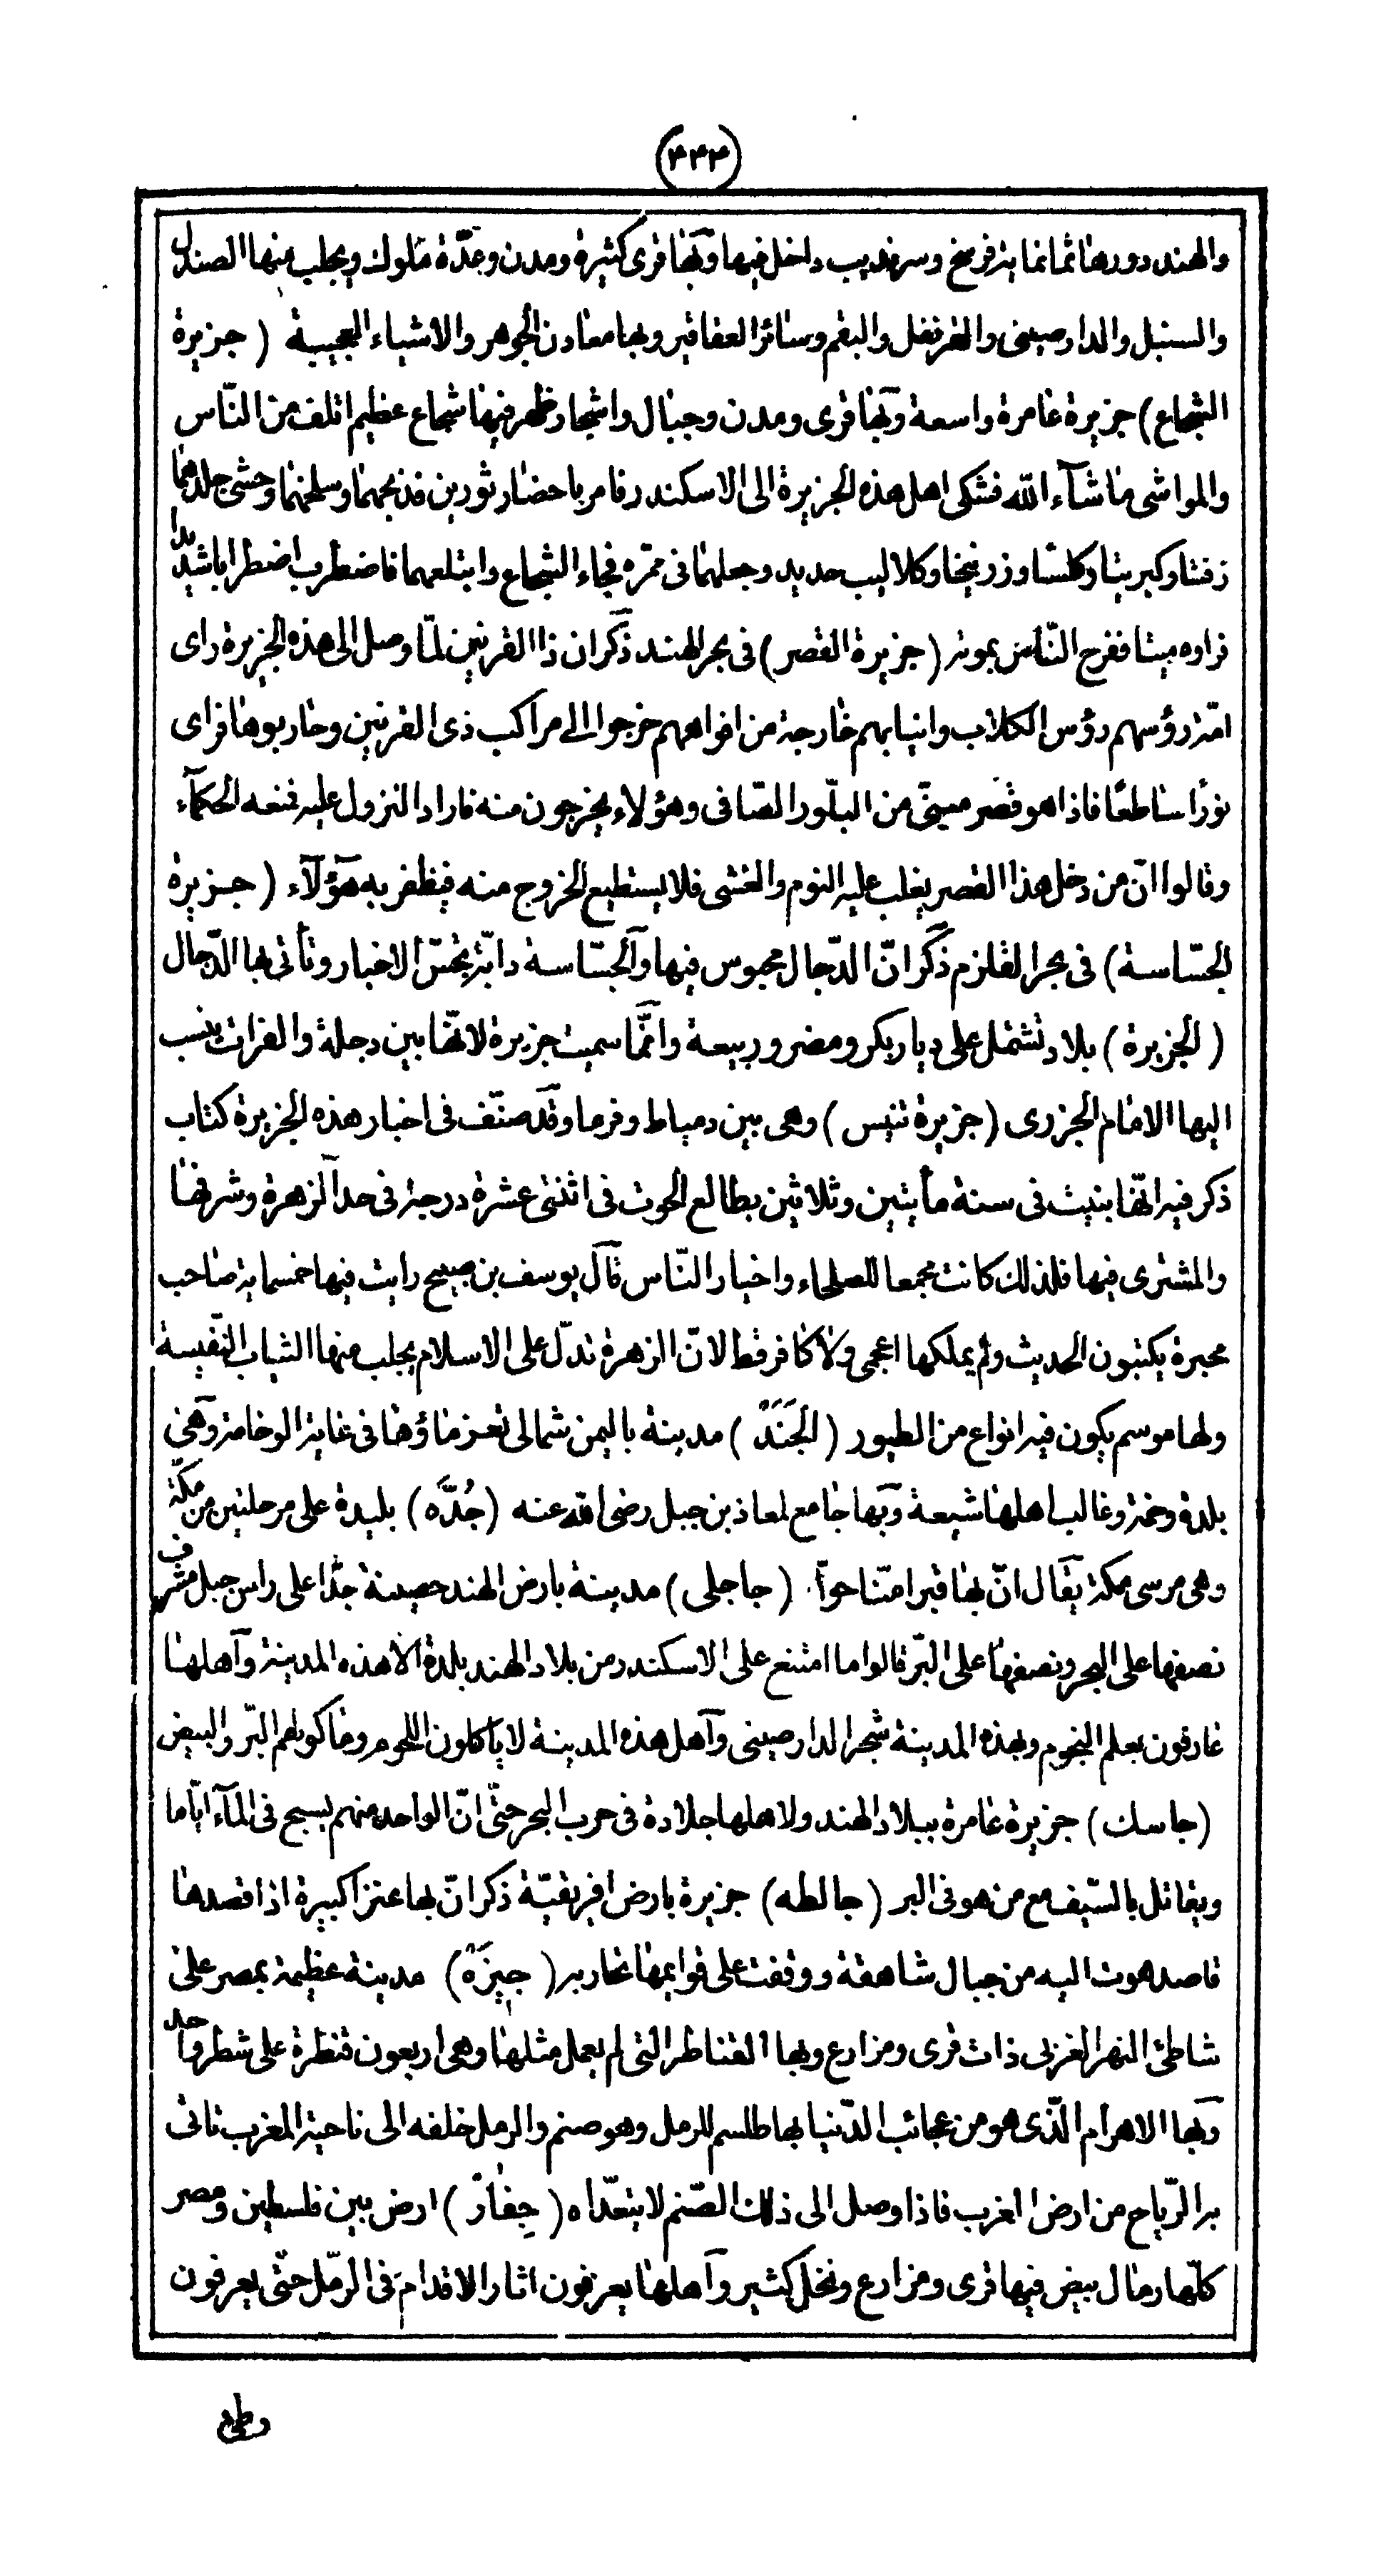 (٤٣٤)
والهند دورها ثمانماية فرسخ وسرنديب داخل فيها وبها قرى كثيرة ومدن وعدّة ملوك ويجلب منها الصندل
والسنبل والدارصينى والقرنفل والبقم وسائر العقاقير وبها معادن الجوهر والاشياء العجيبة ( جزيرة
الشجاع ) جزيرة عامرة واسعة وبها قرى ومدن وجبال واشجار وظهر فيها شجاع عظيم اتلف من النّاس
والمواشى ما شآء الله فشكى اهل هذه الجزيرة الى الاسكندر فامر باحضار ثورين فذبحهما وسلخهما وحشى جلدهما
زفتا وكبريتا وكلسا وزرنيخا وكلاليب حديد وجعلهما فى ممرّه فجاء الشجاع وابتلعهما فاضطرب اضطرابا شديدا
فراوه ميتا ففرح النّاس بموته ( جزيرة القصر ) فى بحر الهند ذكر ان ذا القرنين لمّا وصل الى هذه الجزيرة راى
امّة رؤسهم رؤس الكلاب وانيابهم خارجة من افواههم خرجوا الى مراكب ذى القرنين وحاربوها فراى
نورًا ساطعًا فاذا هو قصر مبنىّ من البلّور الصّافى وهؤلاء يخرجون منه فاراد النزول عليه فمنعه الحكمآء
وقالوا انّ من دخل هذا القصر يغلب عليه النوم والغشى فلا يستطيع الخروج منه فيظفر به هؤلآء ( جزيرة
الجسّاسة ) فى بحر القلزم ذكر انّ الدّجال محبوس فيها والجسّاسة دابّة تجسّ الاخبار وتأتى بها الدّجال
( الجزيرة ) بلاد تشتمل على ديار بكر ومضر وربيعة وانّما سميت جزيرة لانّها بين دجلة والفرات ينسب
اليها الامام الجزرى ( جزيرة تنيس ) وهى بين دمياط وفرما وقد صنّف فى اخبار هذه الجزيرة كتاب
ذكر فيه انّها بنيت فى سنة مأيتين وثلاثين بطالع الحوت فى اثنتى عشرة درجة فى حد الزهرة وشرفها
والمشترى فيها فلذلك كانت مجمعا للصلحاء واخيار النّاس قال يوسف بن صبيح رايت فيها خمسماية صاحب
محبرة يكتبون الحديث ولم يملكها اعجمى ولا كافر قط لانّ الزهرة تدلّ على الاسلام يجلب منها الثياب النّفيسة
ولها موسم يكون فيه انواع من الطيور ( الجَنَدَ ) مدينة باليمن شمالى تعز ماؤها فى غاية الوخامة وهى
بلدة وخمة وغالب اهلها شيعة وبها جامع لمعاذ بن جبل رضى الله عنه ( جُدَّه ) بليدة على مرحلتين من مكّة
وهى مرسى مكة يقال انّ بها قبر امّنا حوّا ( جاجلى ) مدينة بارض الهند حصينة جدًا على راس جبل مشرف
نصفها على البحر ونصفها على البّر قالوا ما امتنع على الاسكندر من بلاد الهند بلدة الا هذه المدينة واهلها
عارفون بعلم النجوم وبهذه المدينة شجر الدارصينى واهل هذه المدينة لا ياكلون اللحوم وماكولهم البّر والبيض
( جاسك ) جزيرة عامرة ببلاد الهند ولاهلها جلادة فى حرب البحر حتّى انّ الواحد منهم يسبح فى المآء ايّاما
ويقاتل بالسّيف مع من هو فى البر ( جالطه ) جزيرة بارض افريقيّة ذكر انّ بها عنزا كبيرة اذا قصدها
قاصد هوت اليه من جبال شاهقة ووقفت على قوايمها تحاربه ( جيزَة ) مدينة عظيمة بمصر على
شاطئ النهر الغربى ذات قرى ومزارع وبها القناطر التى لم يعمل مثلها وهى اربعون قنطرة على شطر واحد
وبها الاهرام الّذى هو من عجائب الدّنيا بها طلسم للرمل وهو صنم والرمل خلفه الى ناحية المغرب تاتى
به الرّياح من ارض الغرب فاذا وصل الى ذلك الصّنم لا يتعدّاه ( جِفَارْ ) ارض بين فلسطين ومصر
كلّها رمال بيض فيها قرى ومزارع ونخل كثير واهلها يعرفون اثار الاقدام فى الرّمل حتّى يعرفون
وطئ